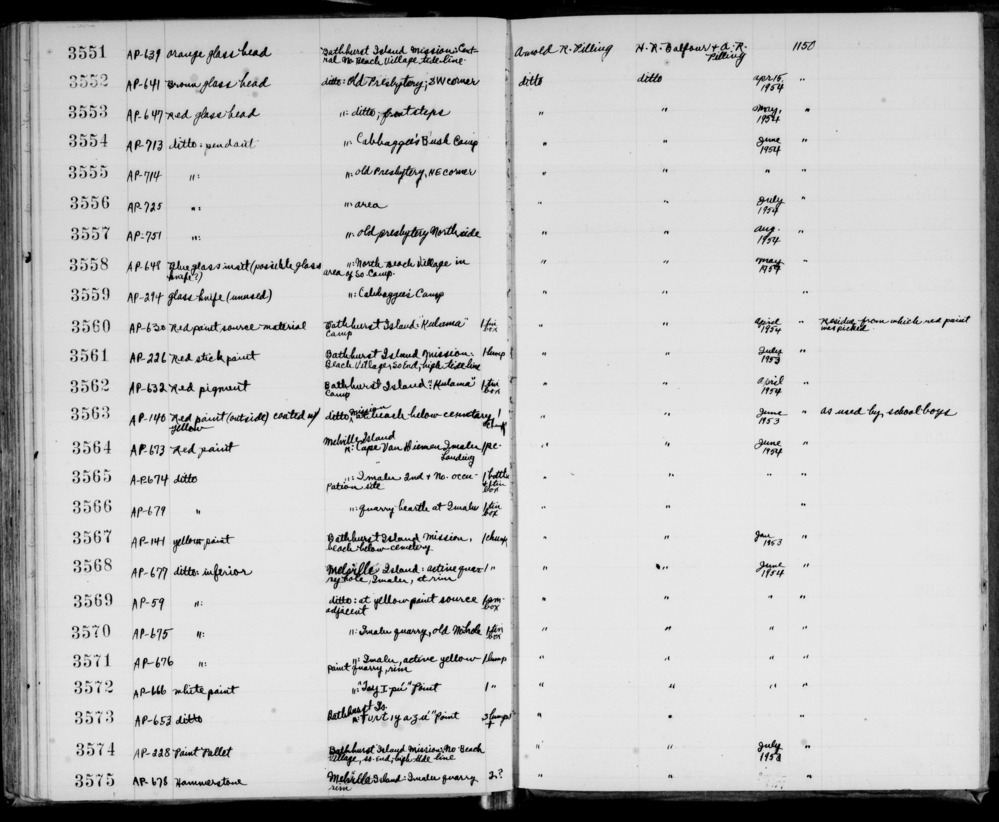 3551 AP-639 orange glass bead Bathhurst Island Mission: Cent- Arnold R. Pilling H. R. Balfour + A. R. 1150
ral No Beach Village, tide line Pilling
3552 AP-641 Brown glass bead ditto: Old Presbytery; SW corner ditto ditto apr 15, "
1954
3553 AP-647 Red glass bead ": ditto; front steps " " May, "
1954
3554 AP-713 ditto: pendant ": Cabbaggee's Bush Camp " " June "
1954
3555 AP-714 ": ": old Presbytery, NE corner " " " "
3556 AP-725 ": ": area " " July "
1954
3557 AP-751 ": ": old presbytery North side " " aug. "
1954
3558 AP-649 Blue glass inset (possible glass ": North Beach Village in " " May "
knife?) area of So. Camp. 1954
3559 AP-294 glass knife (unused) ": Cabbaggee's Camp " " " "
3560 AP-630 Red paint source material Bathhurst Island: "Kulama" 1 tin " " April " Residue from which red paint
Camp box 1954 was picked
3561 AP-226 Red stick paint Bathhurst Island Mission: 1 lump " " July "
Beach Village, So End, high tide line 1953
3562 AP-632 Red pigment Bathhurst Island: "Kulama" 1 tin " " April "
Camp box 1954
3563 AP-140 Red paint (outside) coated w/ ditto mission: at beach below cemetery 1 " " June " as used by school boys
yellow 1953
3564 AP-673 Red paint Melville Island
": Cape Van Diemen Imalu 1 pc. " " June "
Landing 1954
3565 AP-674 ditto ": Imalu 2nd + No. occu- 1 bottle " " " "
pation site + tin box
3566 AP-679 " ": quarry hearth at Imalu 1 tin " " "
box
3567 AP-141 yellow paint Bathhurst Island Mission, 1 chunk " " Jan "
beach below cemetery 1953
3568 AP-677 ditto: inferior Melville Island: active quar- 1 " " " June "
ry hole, Imalu, at rim 1954
3569 AP-59 ": ditto: at yellow paint source 1 sm. " " " "
adjacent box
3570 AP-675 ": ": Imalu quarry, old No hole 1 tin " " " "
box
3571 AP-676 ": ": Imalu, active yellow 1 lump " " " "
paint quarry, rim
3572 AP-666 white paint ": "Tay I pii" Point 1 " " " " "
3573 AP-653 ditto Bathhurst Is.
": Point 3 lumps " " "
3574 AP-228 Paint Pallet Bathhurst Island Mission: No. Beach " " July "
Village, so. end, high tide line 1953
3575 AP-678 Hammerstone Melville Island: Imalu quarry 2? " " " "
rim